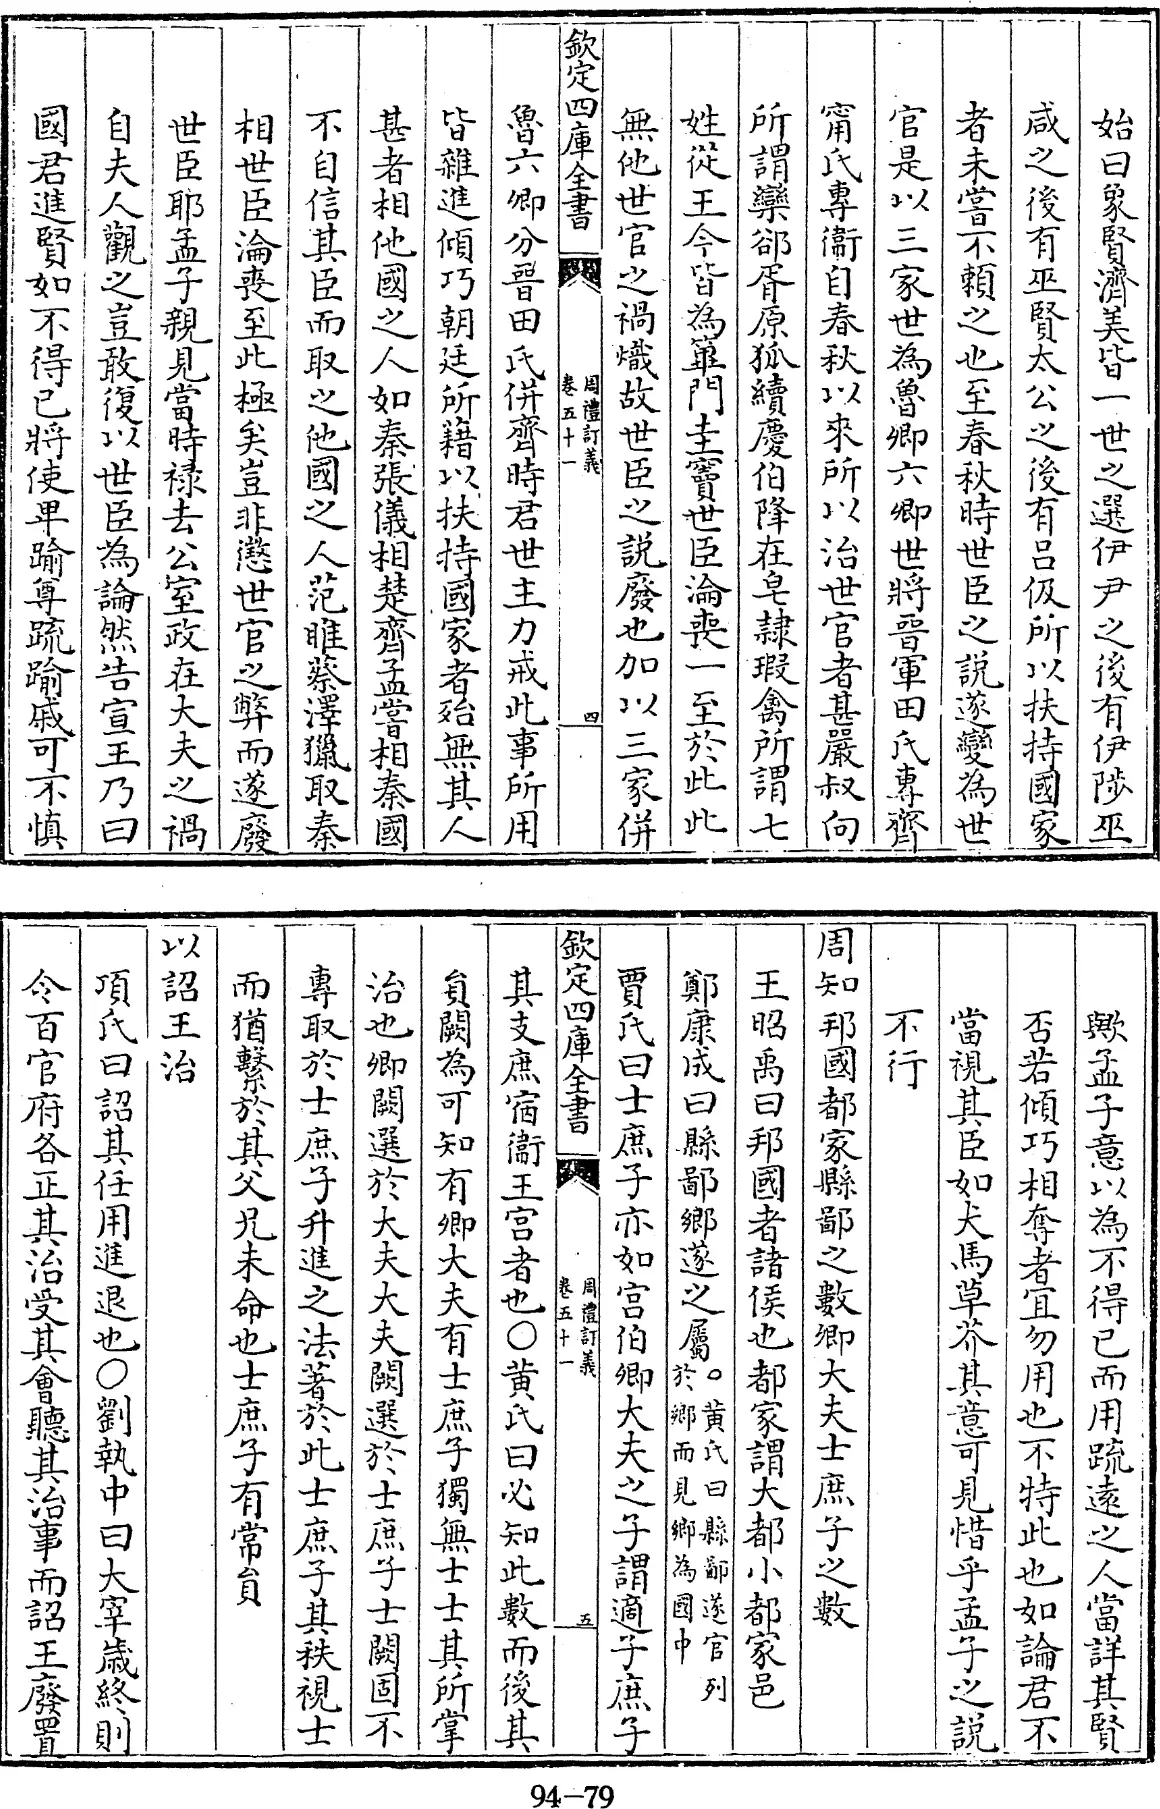 始曰象賢濟美皆一世之選伊尹之後有伊陟巫
咸之後有巫賢太公之後有吕伋所以扶持國家
者未嘗不賴之也至春秋時世臣之說遂變為世
官是以三家世為魯卿六卿世將晉軍田氏專齊
甯氏專衞自春秋以來所以治世官者甚嚴叔向
所謂欒郤胥原狐續慶伯降在皂隸瑕禽所謂七
姓從王今皆為篳門圭竇世臣淪喪一至於此此
無他世官之禍熾故世臣之說廢也加以三家併
欽定四庫全書
周禮訂義
卷五十一
四
魯六卿分晉田氏併齊時君世主力戒此事所用
皆雜進傾巧朝廷所籍以扶持國家者殆無其人
甚者相他國之人如秦張儀相楚齊孟嘗相秦國
不自信其臣而取之他國之人范睢蔡澤獵取秦
相世臣淪喪至此極矣豈非懲世官之弊而遂廢
世臣耶孟子親見當時祿去公室政在大夫之禍
自夫人觀之豈敢復以世臣為論然告宣王乃曰
國君進賢如不得已將使卑踰尊疏踰戚可不慎
歟孟子意以為不得已而用疏逺之人當詳其賢
否若傾巧相奪者宜勿用也不特此也如論君不
當視其臣如犬馬草芥其意可見惜乎孟子之說
不行
周知邦國都家縣鄙之數卿大夫士庶子之數
王昭禹曰邦國者諸侯也都家謂大都小都家邑
鄭康成曰縣鄙鄉遂之屬。黄氏曰縣鄙遂官列
於鄉而見鄉為國中
賈氏曰士庶子亦如宫伯卿大夫之子謂適子庶子
欽定四庫全書
周禮訂義
卷五十一
五
其支庶宿衞王宫者也〇黄氏曰必知此數而後其
貟闕為可知有卿大夫有士庶子獨無士士其所掌
治也卿闕選於大夫大夫闕選於士庶子士闕固不
專取於士庶子升進之法著於此士庶子其秩視士
而猶繫於其父兄未命也士庶子有常貟
以詔王治
項氏曰詔其任用進退也〇劉執中曰大宰歲終則
令百官府各正其治受其會聽其治事而詔王廢置
94-79